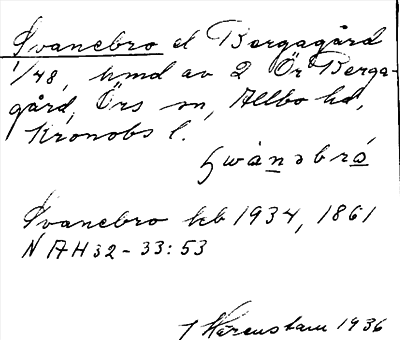 Svanebro el Bergagård
1/48, hmd av 2 Ör Berga-
gård, Örs sn, Allbo hd,
Kronobs l.
swȧnəbrȧ
Svanebro kb 1934, 1861
N AH 32-33:53
1936